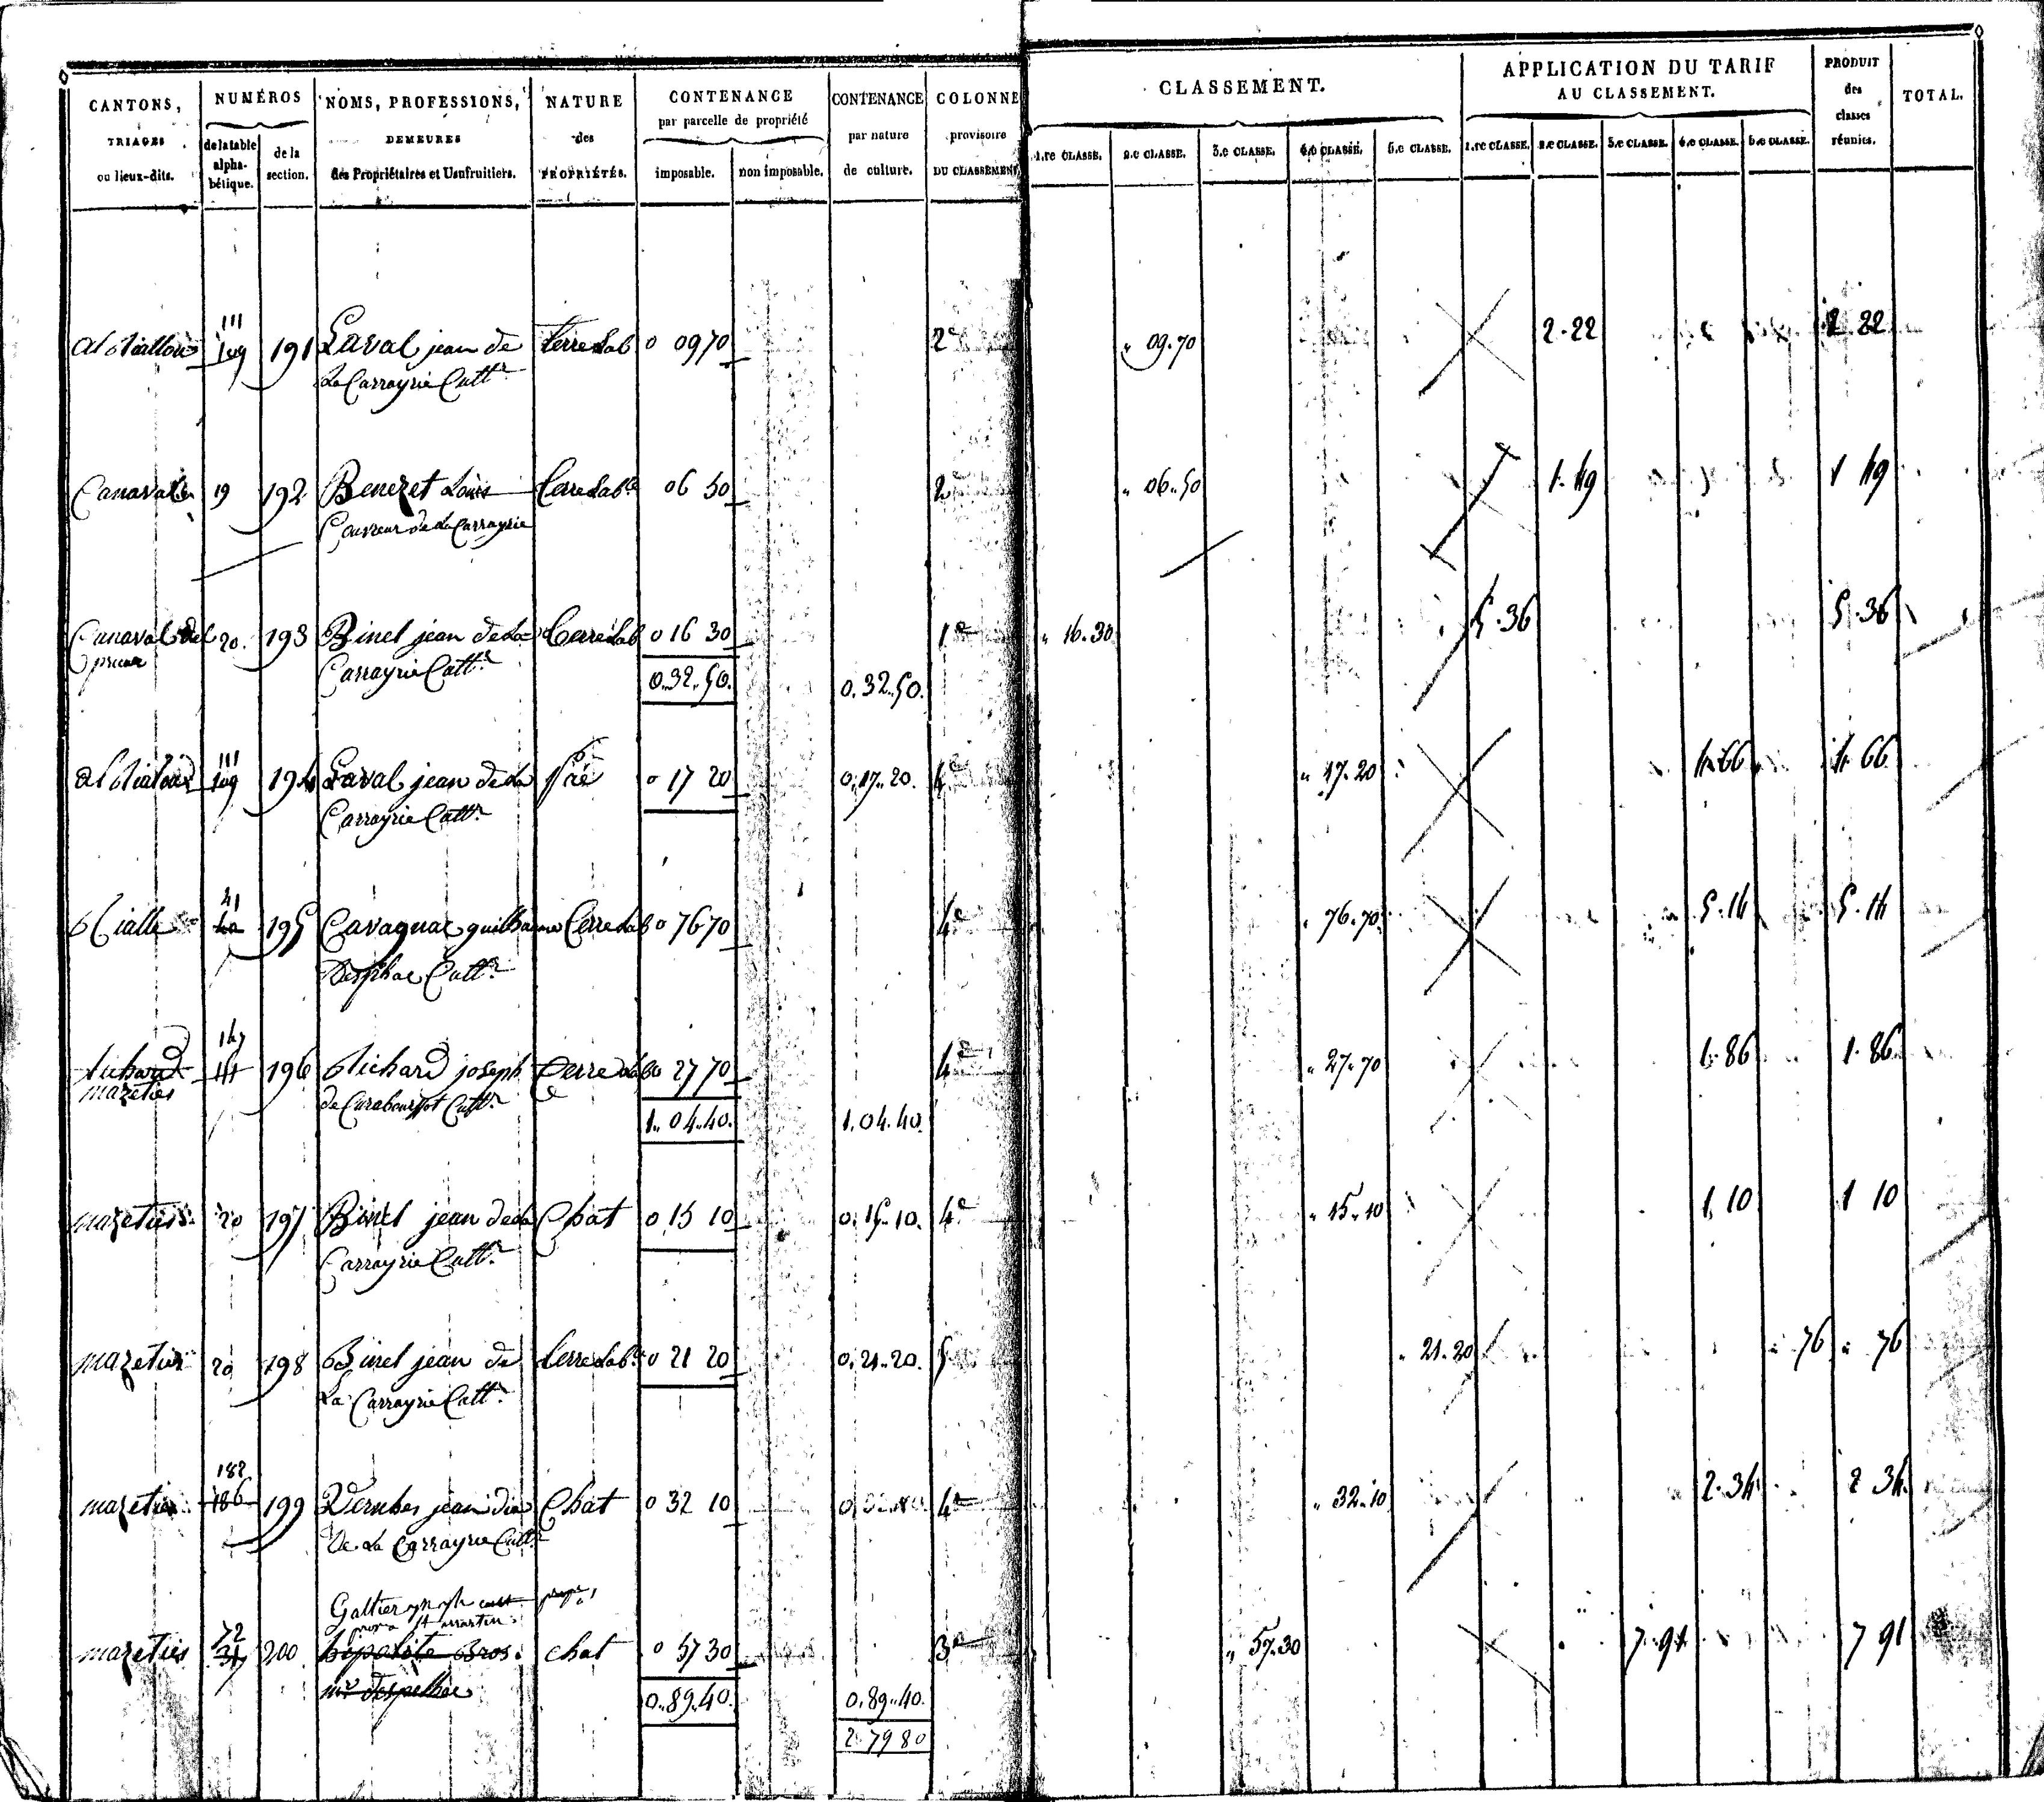 CANTONS, TRIAGES ou lieux-dits.
NUMÉROS
de la table alpha-bétique.
de la section.
NOMS, PROFESSIONS, DEMEURES des Propriétaires et Usufruitiers.
NATURE des PROPRIÉTÉS.
CONTENANCE par parcelle de propriété
imposable.
non imposable.
CONTENANCE par nature de culture.
COLONNE provisoire DU CLASSEMENT
CLASSEMENT.
1.re CLASSE. 2.e CLASSE. 3.e CLASSE. 4.e CLASSE. 5.e CLASSE.
APPLICATION DU TARIF AU CLASSEMENT.
1.re CLASSE. 2.e CLASSE. 3.e CLASSE. 4.e CLASSE. 5.e CLASSE.
PRODUIT des classes réunies.
TOTAL.
111
109 191 Laval jean de terre Lab 0 09 70 2e " 09.70 2.22 2 22
La Carrayrie Cultr
19 192 Benezet Louis terre Lable 06 50 2e " 06.50 1.49 1 49
Couvreur de La Carrayrie
Canaval del 20. 193 Binel jean de La terre Lab 0 16 30 1e " 16.30 5.36 5.36
prieur Carrayrie Cultr
0..32..50. 0.32..50.
111
109 194 Laval jean de La 0 17 20 0.17..20. 4e " 17.20 4.66 4.66
Carrayrie Cultr
41
40 195 Cavagnac guilhaume terre Lab 0 76 70 4e " 76.70 5.14 5.14
Cultr
147
196 Richard joseph terre Lab 0 27 70 4e " 27.70 1.86 1.86
mazeties Cultr
1..04..40. 1.04.40.
mazeties 20 197 Binel jean de La Chat 0 15 10 0.15..10. 4e " 15.10 1.10 1 10
Carrayrie Cultr
mazeties 20 198 Binel jean de terre Lab 0 21 20 0.21..20. 5 " 21.20 " 76 " 76
La Carrayrie Cultr
188
mazeties 186 199 jean Chat 0 32 10 4e " 32.10 2.34 2 34
de La Carrayrie Cultr
Galtier
St martin
72
mazeties 37 200 hipolite Bros. chat 0 57 30 3e " 57.30 7.91 7 91
mr
0..89.40. 0.89..40.
2 79 80